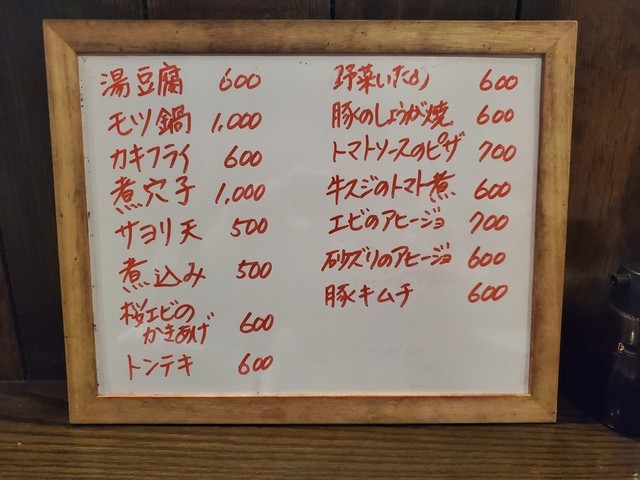 湯豆腐 600
モツ鍋 1,000
カキフライ 600
煮穴子 1,000
サヨリ天 500
煮込み 500
桜エビの
かきあげ 600
トンテキ 600
野菜いため 600
豚のしょうが焼 600
トマトソースのピザ 700
牛スジのトマト煮 600
エビのアヒージョ 700
砂ズリのアヒージョ 600
豚キムチ 600